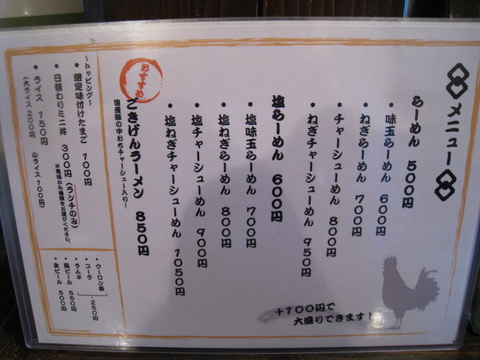 メニュー
らーめん 500円
・味玉らーめん 600円
・ねぎらーめん 700円
・チャーシューめん 800円
・ねぎチャーシューめん 950円
塩らーめん 600円
・塩味玉らーめん 700円
・塩ねぎらーめん 800円
・塩チャーシューめん 900円
・塩ねぎチャーシューめん 1050円
おすすめ
ごきげんラーメン 850円
国産豚の中おちチャーシュー入り!
~トッピング~
・限定味付けたまご 100円
・日替わりミニ丼 300円(ランチのみ)
・ライス 150円
(大ライス 200円 小ライス 100円)
・ウーロン茶
・コーラ
・ラムネ
250円
・瓶ビール 550円
・生ビール 500円
+100円で
大盛りできます!